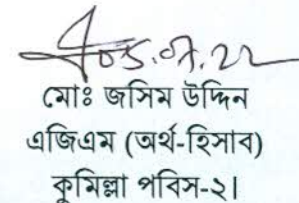 ০৫.০৭.২২
মোঃ জসিম উদ্দিন
এজিএম (অর্থ-হিসাব)
কুমিল্লা পবিস-২।